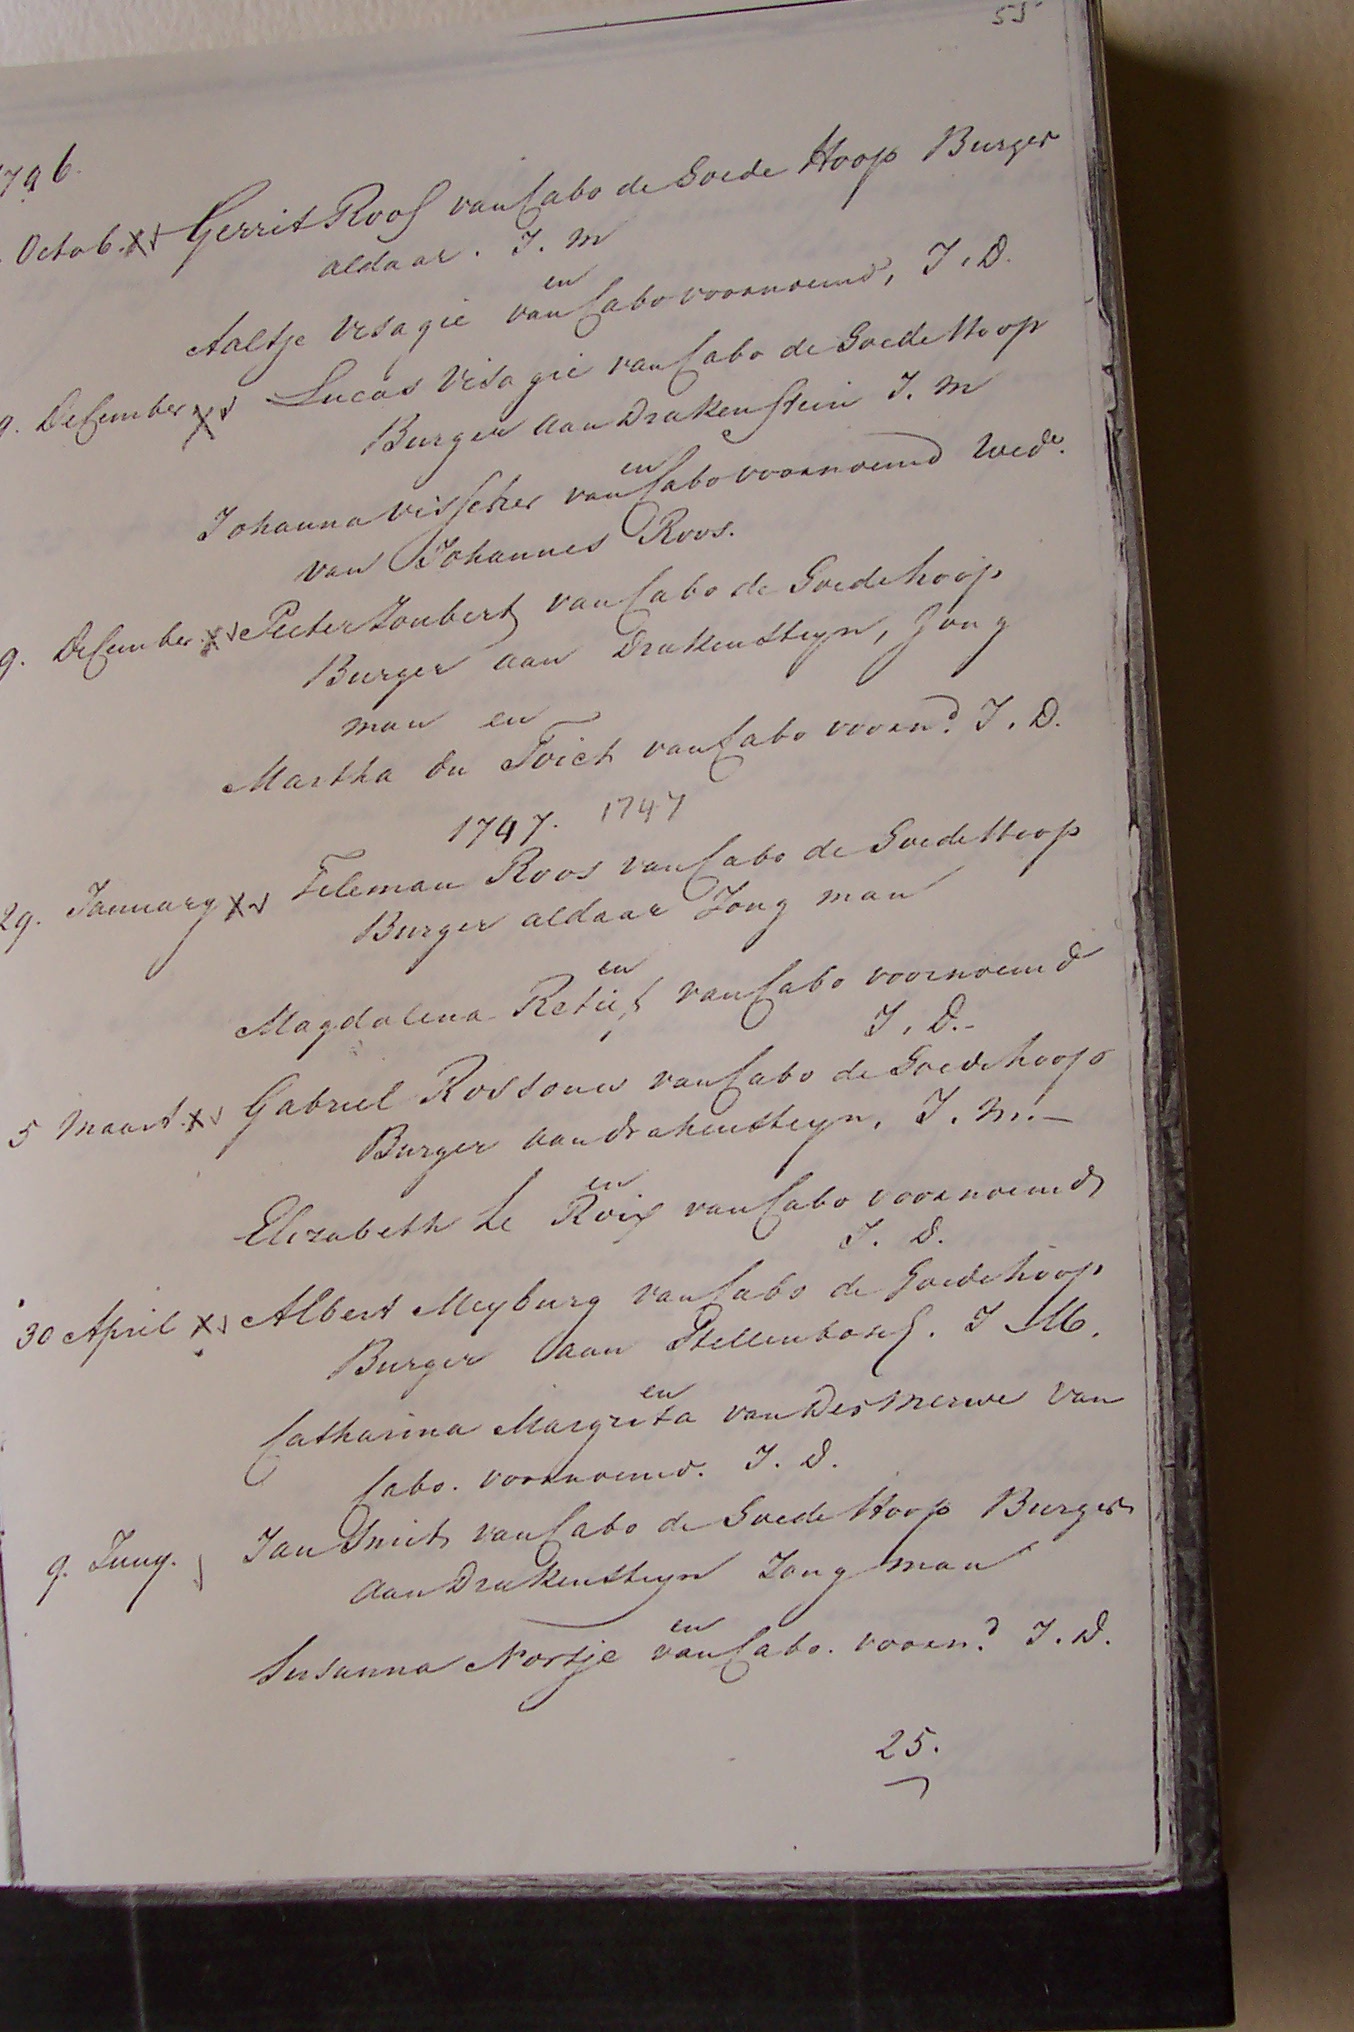 55
1746.
Octob. x Gerrit Roos van Cabo de Goede Hoop Burger
aldaar. J. M
en
Aaltje Visagie van Cabo voornoemd, J. D.
9. December x Lucas Visagie van Cabo de Goede Hoop
Burger aan Drakenstein J. M
en
Johanna Visscher van Cabo voornoemd Wede.
van Johannes Roos.
9. December x Pieter Joubert van Cabo de Goede hoop
Burger aan Drakensteyn, Jong
man en
Martha du Toict van Cabo voorn.d J. D.
1747. 1747
29. January x Tileman Roos van Cabo de Goede Hoop
Burger aldaar Jong man
en
Magdalena Retief van Cabo voornoemd
J. D.-
5 Maart x Gabriel Rossouw van Cabo de Goede hoop
Burger aan drakensteyn. J. M.-
en
Elizabeth Le Roix van Cabo voornoemd
J. D.
30 April x Albert Meyburg van Cabo de Goede hoop
Burger aan Stellenbosch. J M.
en
Catharina Margrita van Der Merwe van
Cabo. voornoemd. J. D.
9. Juny. Jan Smit van Cabo de Goede Hoop Burger
aan Drakensteyn Jong man
en
Susanna Nortje van Cabo. voorn.d J. D.
25.